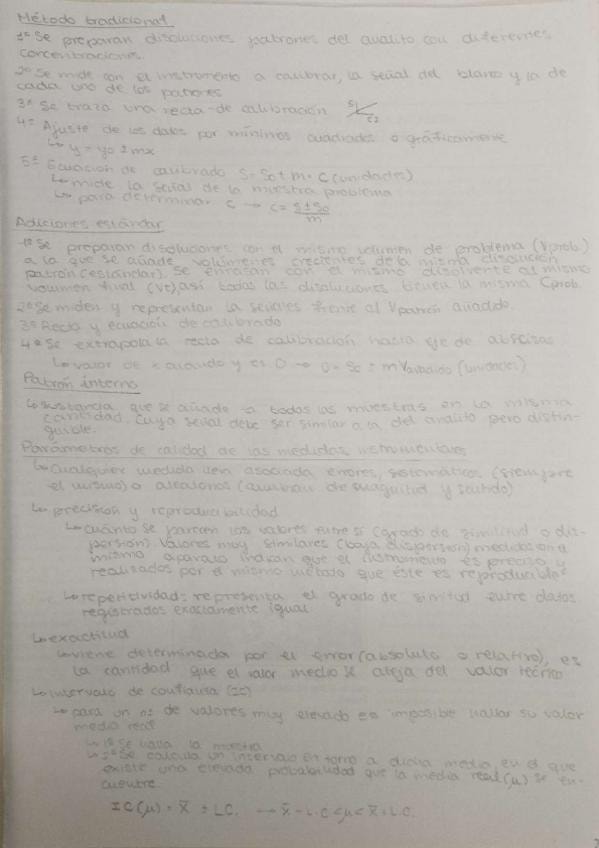 Método tradicional
1º Se preparan disoluciones patrones del analito con diferentes
concentraciones.
2º Se mide con el instrumento a calibrar, la señal del blanco y la de
cada uno de los patrones
3º Se traza una recta de calibración
4º Ajuste de los datos por mínimos cuadrados o gráficamente
↳ y = y0 ± mx
5º Ecuación de calibrado S = S0 + m · C (unidades)
↳ mide la señal de la muestra problema
↳ para determinar C → C = S ± S0 / m
Adiciones estándar
1º Se preparan disoluciones con el mismo volumen de problema (Vprob)
a la que se añade volúmenes crecientes de la misma disolución
patrón (estándar). Se enrasan con el mismo disolvente al mismo
volumen final (Vt), así todas las disoluciones tienen la misma Cprob.
2º Se miden y representan la señales frente al Vpatrón añadido.
3º Recta y ecuación de calibrado
4º Se extrapola la recta de calibración hacia eje de abscisas
↳ valor de x cuando y es 0 → 0 = S0 ± m Vañadido (unidades)
Patrón interno
↳ sustancia que se añade a todas las muestras en la misma
cantidad. Cuya señal debe ser similar a la del analito pero distin-
guible.
Parámetros de calidad de las medidas instrumentales
↳ Cualquier medida lleva asociada errores, sistemáticos (siempre
el mismo) o aleatorios (cambian de magnitud y sentido)
↳ precisión y reproducibilidad
↳ cuánto se parecen los valores entre sí (grado de similitud o dis-
persión). Valores muy similares (baja dispersión) medidos en el
mismo aparato indican que el instrumento es preciso y
realizados por el mismo método que éste es reproducible
↳ repetitividad: representa el grado de simitud entre datos
registrados exactamente igual
↳ exactitud
↳ viene determinada por el error (absoluto o relativo), es
la cantidad que el valor medio se aleja del valor teórico
↳ intervalo de confianza (IC)
↳ para un nº de valores muy elevado es imposible hallar su valor
medio real
↳ 1º Se halla la muestra
↳ 2º Se calcula un intervalo en torno a dicha media, en el que
existe una elevada probabilidad que la media real (μ) se en-
cuentre.
IC (μ) = x̄ ± L.C. → x̄ - L.C < μ < x̄ + L.C.